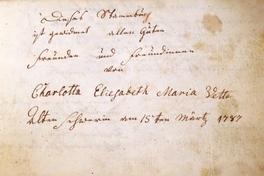 Dieses Stammbuch
ist gewidmet allen Guten
Freunden und Freundinnen
von
Charlotta Eliesabeth Maria
Alten Schwerin am 15ten Märtz 1787